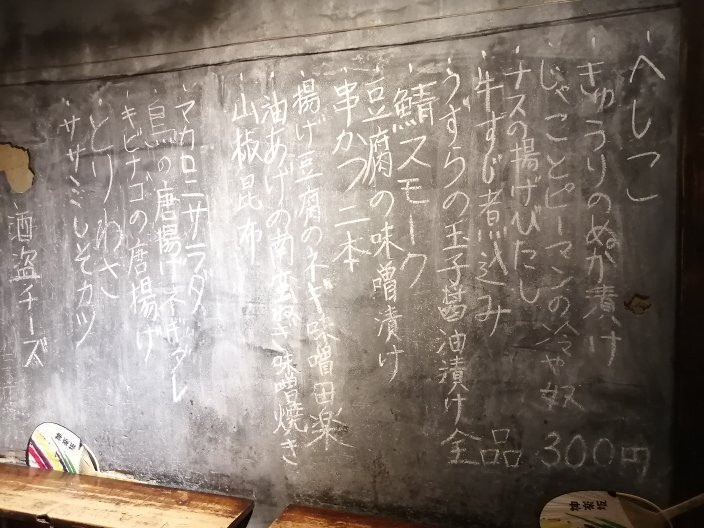 ・へしこ
・きゅうりのぬか漬け
・じゃことピーマンの冷や奴
・ナスの揚げびたし
・牛すじ煮込み
・うずらの玉子醤油漬け
・鯖スモーク
・豆腐の味噌漬け
・串かつ二本
・揚げ豆腐のネギ味噌田楽
・油あげの南蛮ねぎ味噌焼き
・山椒昆布
・マカロニサラダ
・鳥の唐揚げネギダレ
・キビナゴの唐揚げ
・とりわさ
・ササミしそカツ
・酒盗チーズ
全品300円
神楽坂
神楽坂